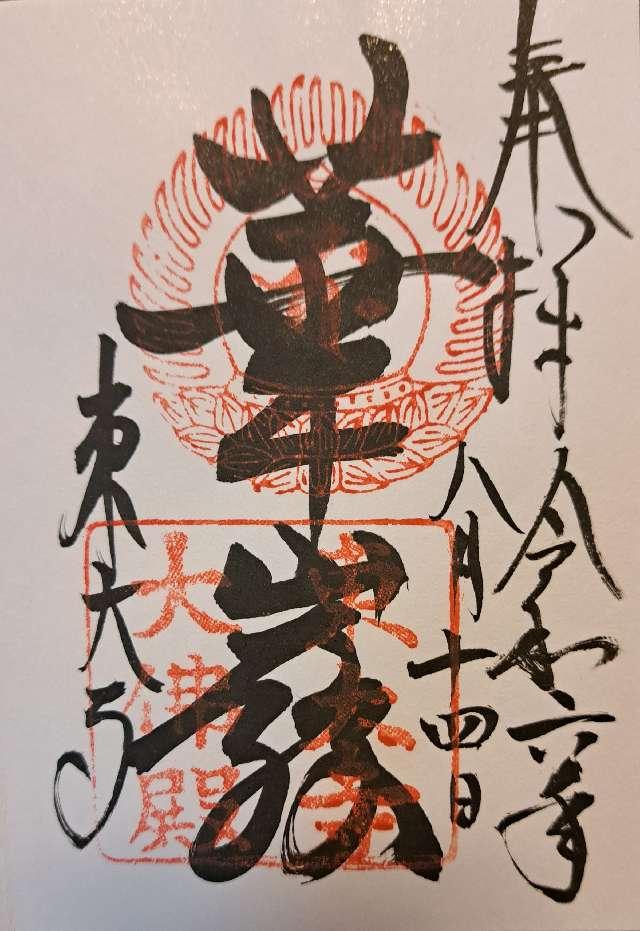 奉拝
令和六年
八月十四日
華厳
東大寺
東大寺
大佛殿